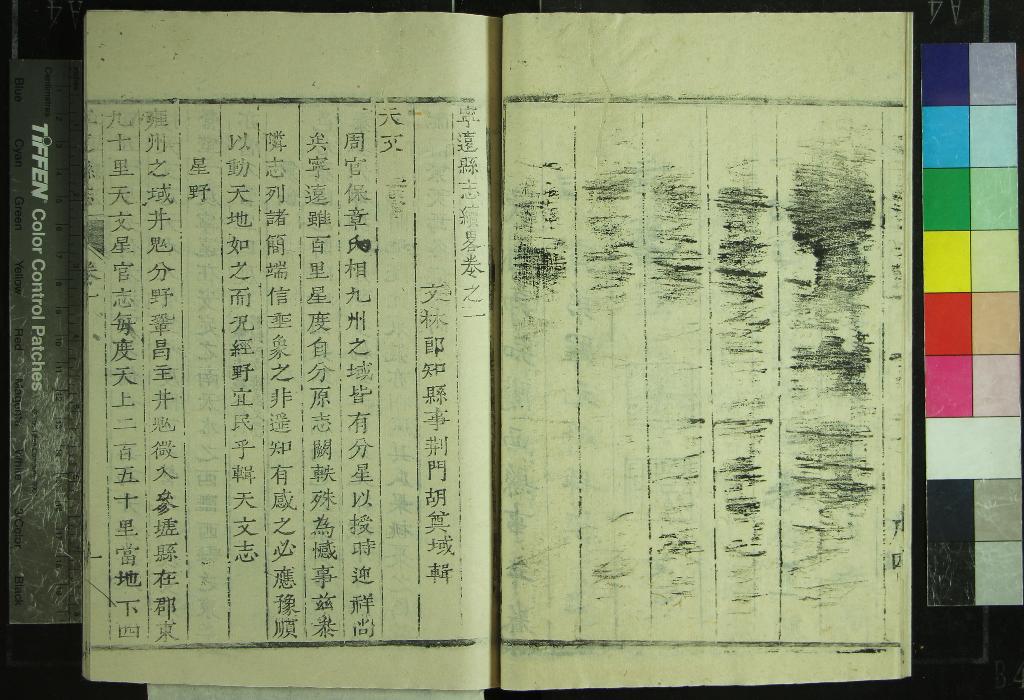 寧遠縣志續畧卷之一
文林郎知縣事荆門胡奠域輯
天文
周官保章氏相九州之域皆有分星以授時迎祥尚
矣寧遠雖百里星度自分原志闕軼殊為憾事兹恭
隣志列諸簡端信垂象之非遥知有感之必應豫順
以動天地如之而况經野宜民乎輯天文志
星野
雍州之域井鬼分野鞏昌主井鬼微入參墟縣在郡東
九十里天文星官志每度天上二百五十里當地下四
TIFFEN Color Control Patches
Blue
Cyan
Green
Yellow
Red
Magenta
White
3/Color
Black
Centimetres